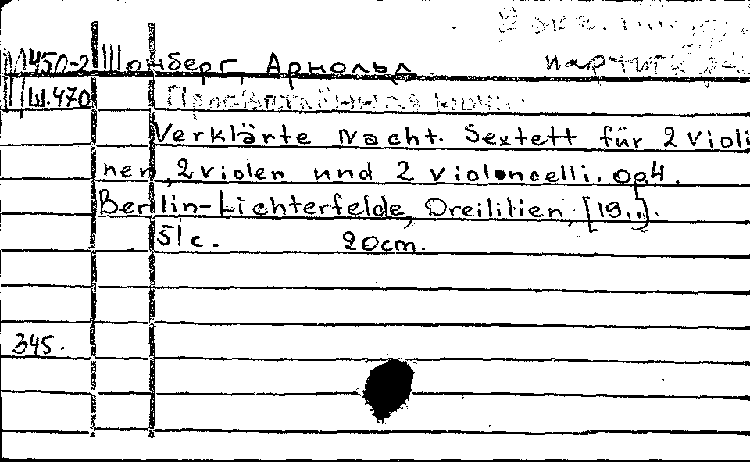 2 экз.
партитура
М450-2 Шонберг, Арнольд
Ш.470 Просветлённая ночь.
Verklärte Nacht. Sextett für 2 Violi
nen, 2 violen und 2 violoncelli. op4.
Berlin-Lichterfelde, Dreililien, [19..].
51 c. 20cm.
345.